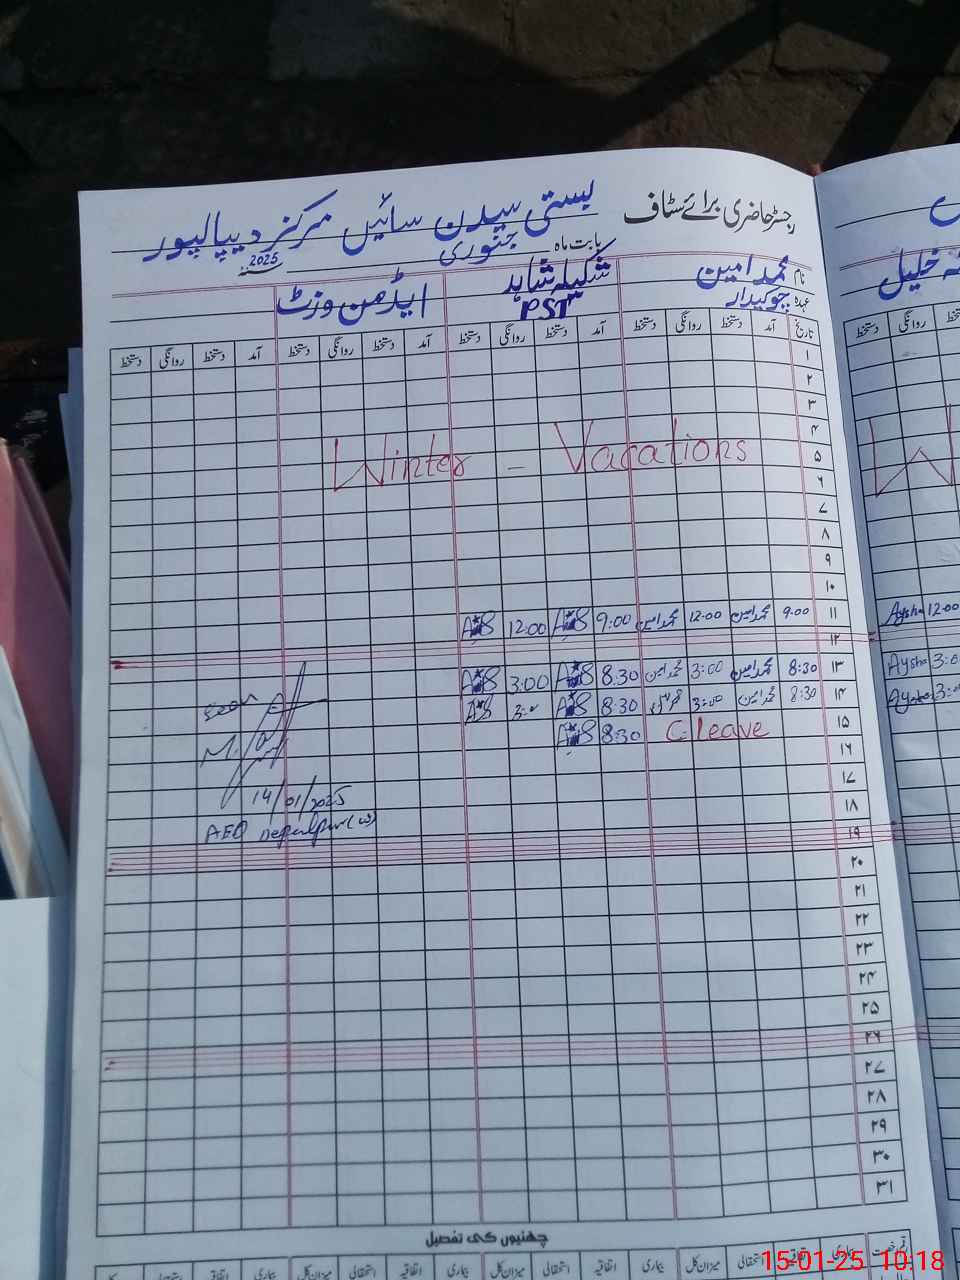 رجسٹر حاضری برائے سٹاف بستی سیدن سائیں مرکز دیپالپور
بابت ماہ جنوری سنہ 2025
نام محمد امین شکیلہ شاہد ایڈمن وزٹ
عہدہ چوکیدار PST
تاریخ آمد دستخط روانگی دستخط آمد دستخط روانگی دستخط آمد دستخط روانگی دستخط آمد دستخط روانگی دستخط
۱
۲
۳
۴
Winter - Vacations
۵
۶
۷
۸
۹
۱۰
۱۱ 9:00 محمد امین 12:00 محمد امین 9:00 12:00
۱۲
۱۳ 8:30 محمد امین 3:00 محمد امین 8:30 3:00
۱۴ 8:30 محمد امین 3:00 8:30
۱۵ C-Leave 8:30
seen
۱۶
۱۷
14/01/2025
۱۸
AEO Depalpur (W)
۱۹
۲۰
۲۱
۲۲
۲۳
۲۴
۲۵
۲۶
۲۷
۲۸
۲۹
۳۰
۳۱
چھٹیوں کی تفصیل
قسم رخصت بیماری اتفاقیہ استحقاقی میزان کل بیماری اتفاقیہ استحقاقی میزان کل بیماری اتفاقیہ استحقاقی میزان کل بیماری اتفاقیہ استحقاقی کل
خلیل
دستخط روانگی
Aysha 12:00
Aysha
Aysha 3:00
15-01-25 10:18